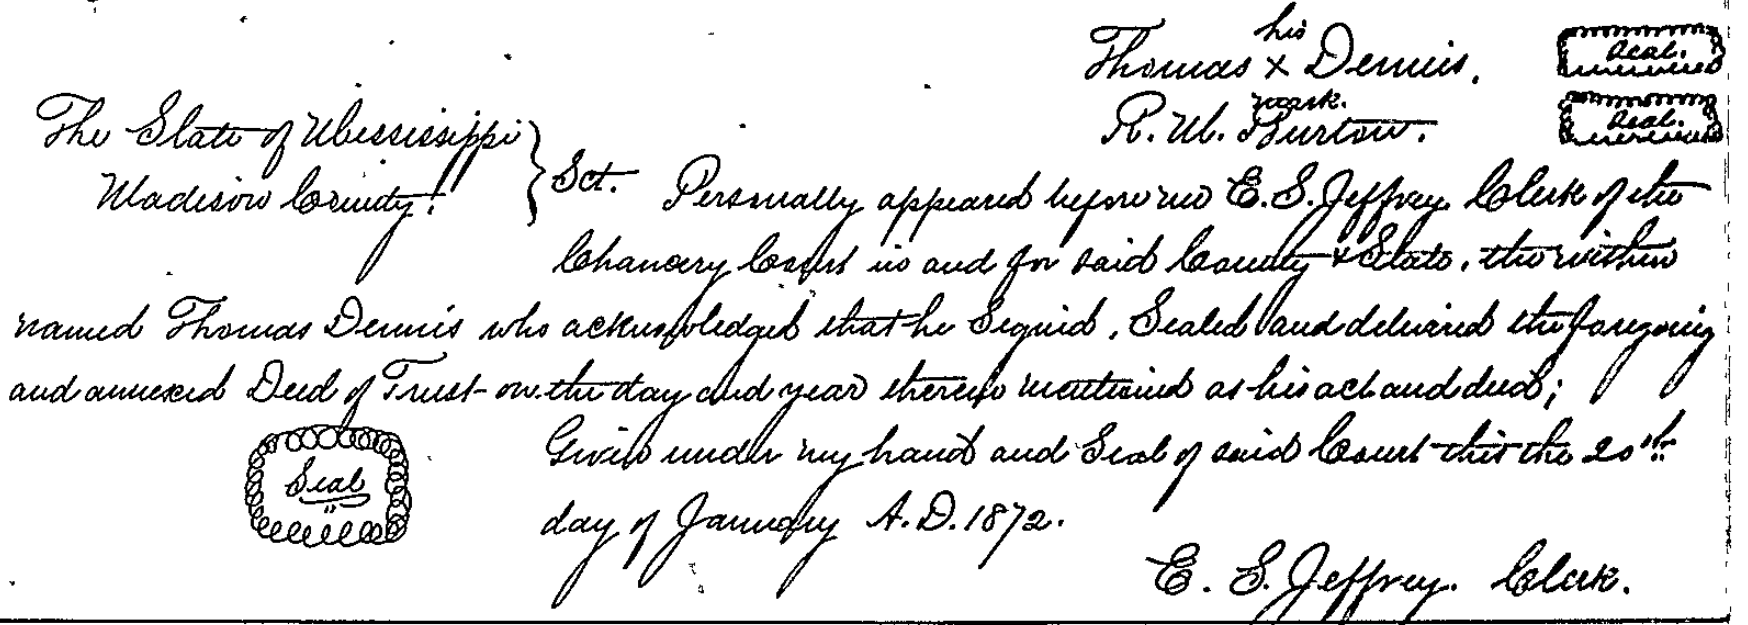 his
Thomas x Dennis. Seal.
mark.
R. W. Burton. Seal.
The State of Mississippi
Madison County. } Sct. Personally appeared before me E. S. Jeffrey Clerk of the
Chancery Court in and for said County & State, the within
named Thomas Dennis who acknowledged that he Signed, Sealed and delivered the foregoing
and annexed Deed of Trust on the day and year therein mentioned as his act and deed;
Given under my hand and Seal of said Court this the 20th
Seal
day of January A.D. 1872.
E. S. Jeffrey. Clerk.